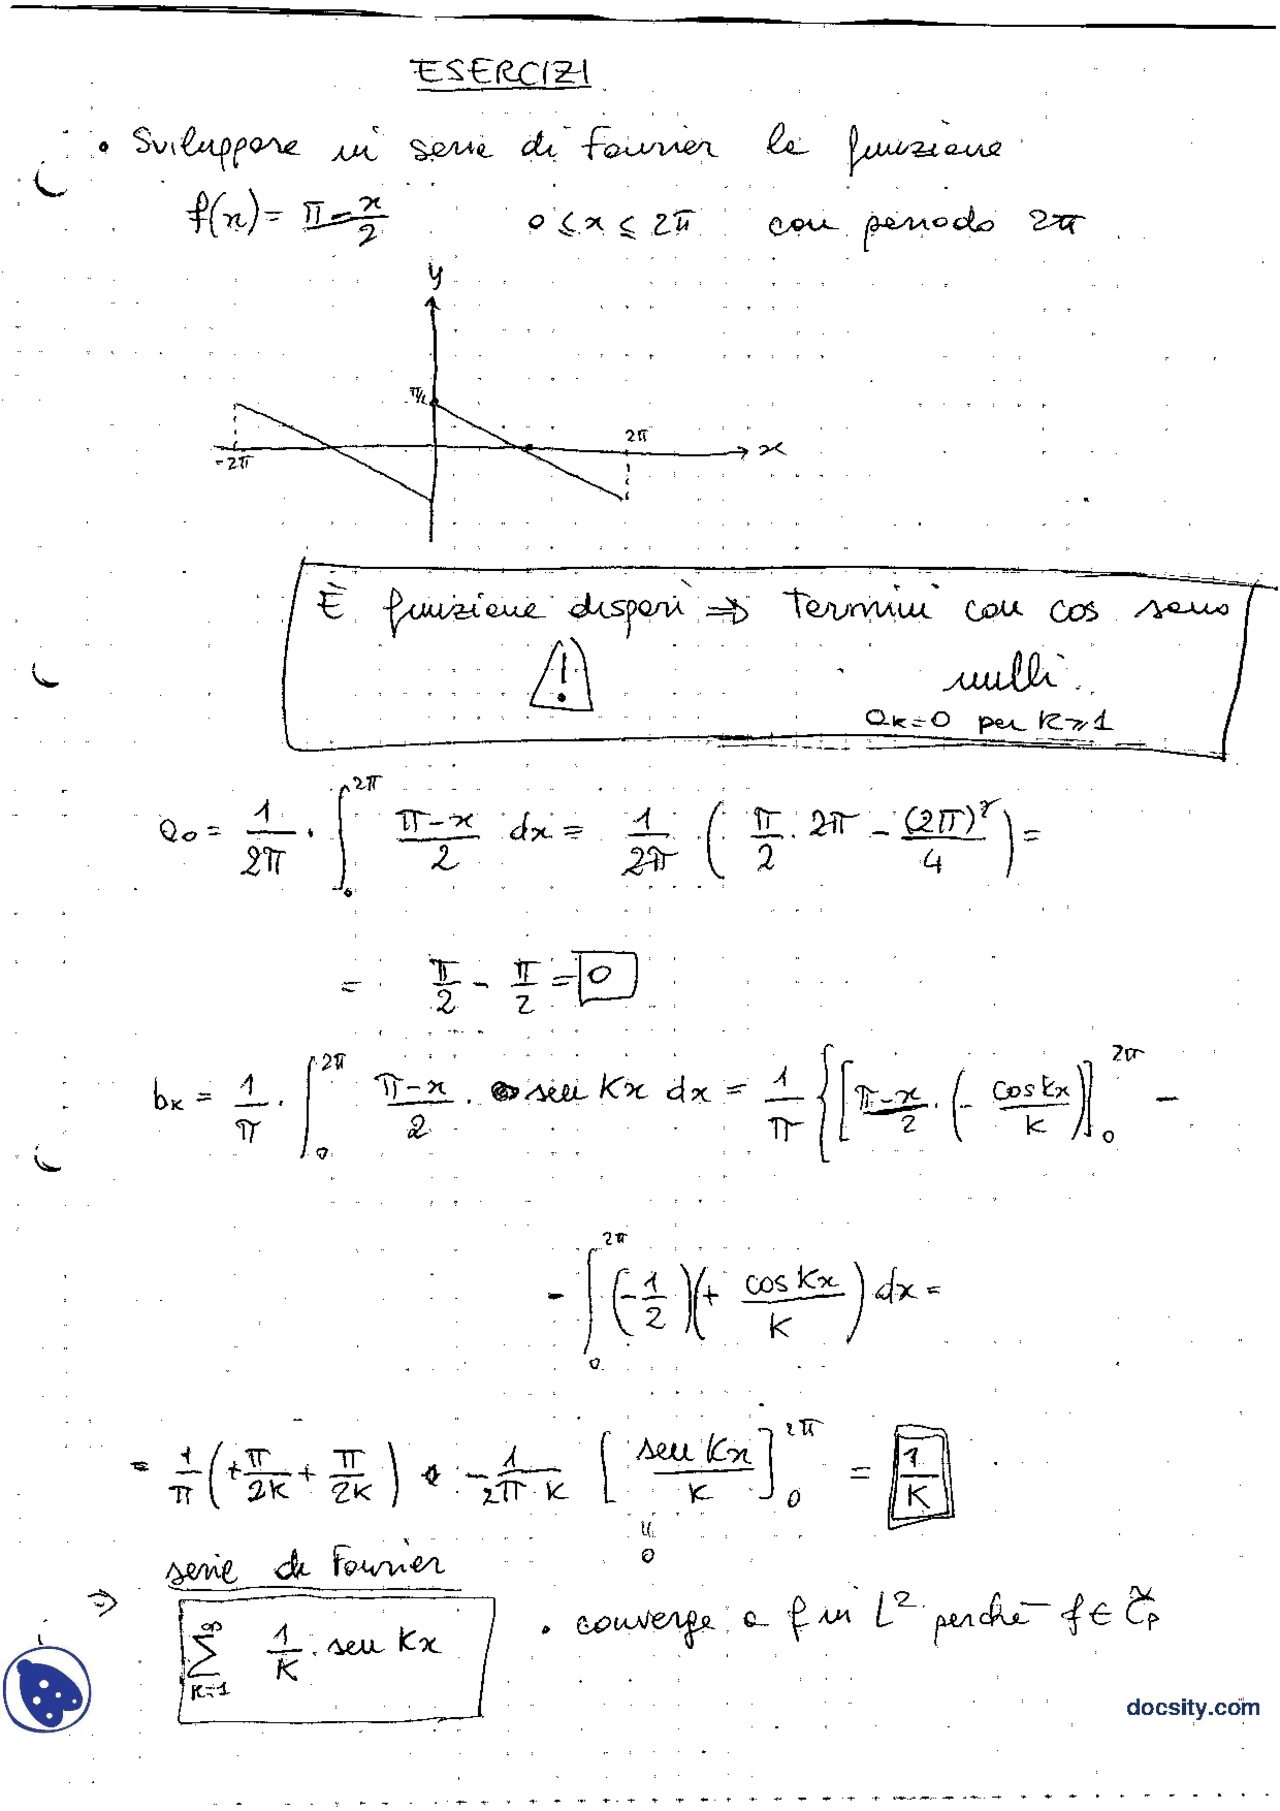 ESERCIZI
• Sviluppare in serie di Fourier la funzione
f(x) = π-x/2 0 ≤ x ≤ 2π con periodo 2π
y
π/2
2π
x
-2π
È funzione dispari ⇒ Termini con cos sono
!
nulli.
ak=0 per K≥1
a0 = 1/2π · ∫_0^2π π-x/2 dx = 1/2π · ( π/2 · 2π - (2π)²/4 ) =
= π/2 - π/2 = 0
bk = 1/π · ∫_0^2π π-x/2 · sen Kx dx = 1/π { [ π-x/2 · (- cos kx/K) ]_0^2π -
- ∫_0^2π (-1/2)(+ cos Kx/K) dx =
= 1/π (+π/2K + π/2K) - 1/2π·K [ sen Kx/K ]_0^2π = 1/K
"
0
serie di Fourier
⇒ ∑_K=1^∞ 1/K · sen Kx • converge a f in L² perché f ∈ C̃p
docsity.com